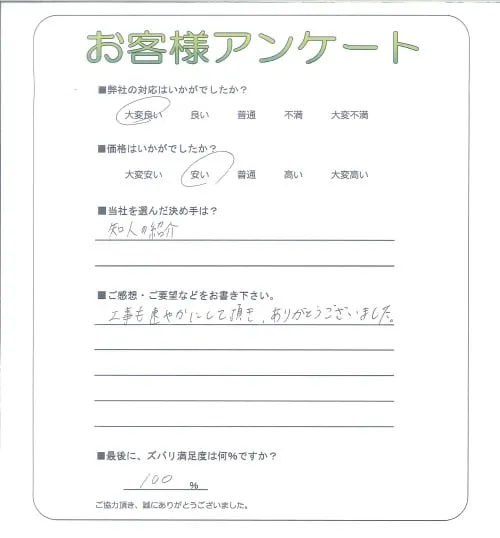 お客様アンケート
■弊社の対応はいかがでしたか？
大変良い 良い 普通 不満 大変不満
■価格はいかがでしたか？
大変安い 安い 普通 高い 大変高い
■当社を選んだ決め手は？
知人の紹介
■ご感想・ご要望などをお書き下さい。
工事も速やかにして頂き、ありがとうございました。
■最後に、ズバリ満足度は何%ですか？
100 %
ご協力頂き、誠にありがとうございました。